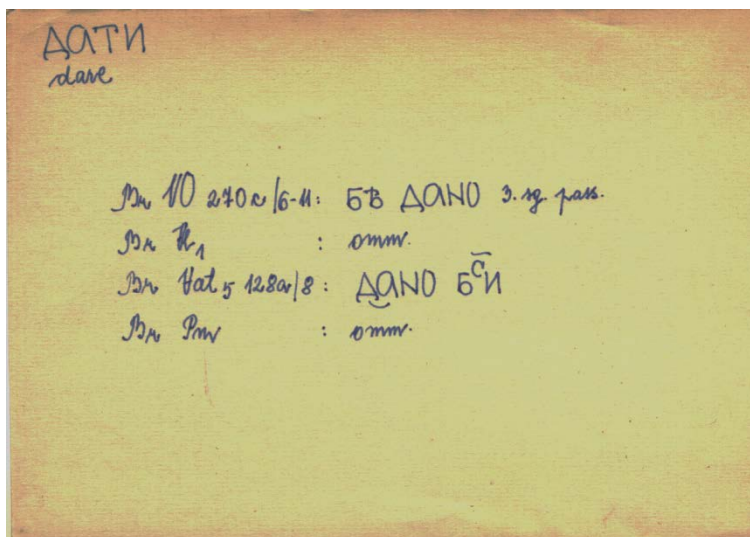 ДАТИ
dare
Br VO 270c/6-11: БВ ДАNО 3. sg. pass.
Br N₁ : omm.
Br Vat₅ 128a/8: ДАNО БСИ
Br Pm : omm.